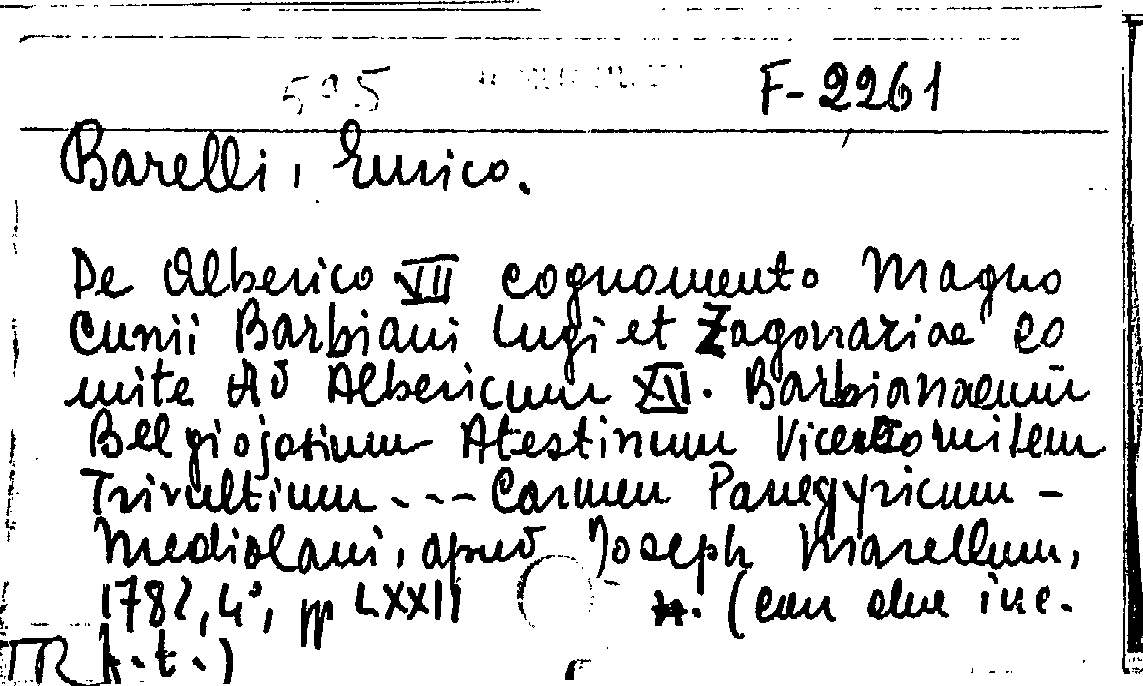 595 F-2261
Barelli, Enrico.
De Alberico VII cognomento Magno
Cunii Barbiani Lugi et Zagonariae Co
mite Ad Albericum XII. Barbianaeum
Belgiojosium Atestinum Vicecomitem
Trivultium --- Carmen Panegyricum -
Mediolani, apud Joseph Marellum,
1782, 4°, pp LXXII (con due inc.
f.t.)
TR